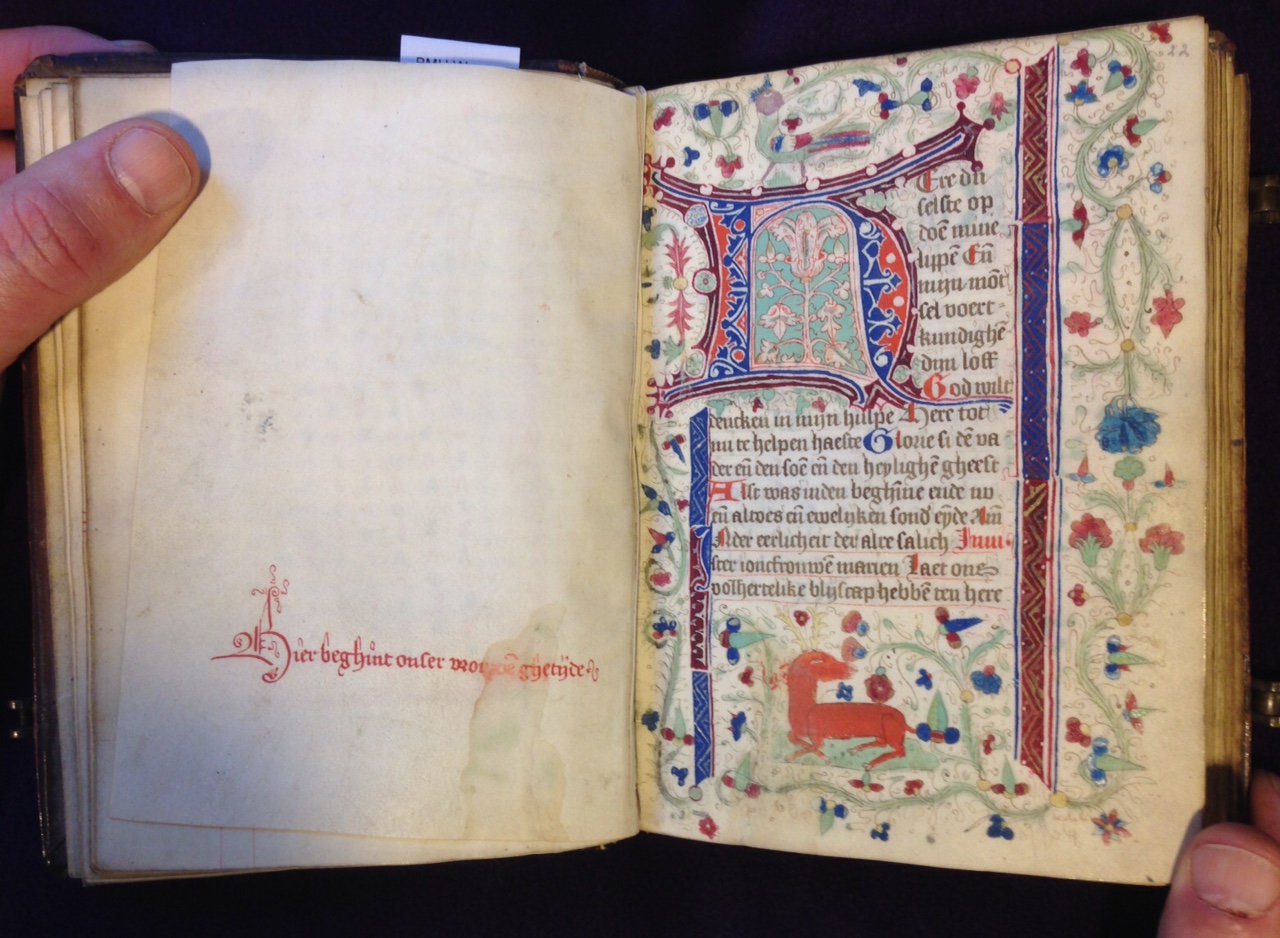 Hier beghīnt onser vrouwē ghetijde
22
HEre du
selste op
doē mine
lippē Eñ
mijn mōt
sel voert-
kundighē
dijn loff
God wilt
dencken in mijn hulpe Here tot
mi te helpen haeste Glorie si dē va
der eñ den soē eñ den heylighē gheest
Alst was inden beghīne ende nv
eñ altoes eñ ewelijken sond' eȳde Amē
In der eerlicheit der alre salich
ster ioncfrouwē marien Laet ons
vol hertelike blijscap hebbē ten here